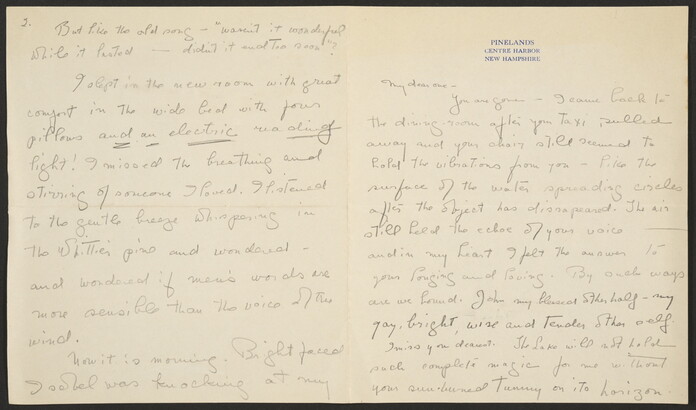 PINELANDS
CENTRE HARBOR
NEW HAMPSHIRE
My dear one -
You are gone - I came back to
the dining-room after your taxi pulled
away and your chair still seemed to
hold the vibrations from you - like the
surface of the water spreading circles
after the object has disapeared. The air
still held the echoe of your voice
and in my heart I felt the answer to
your longing and loving. By such ways
are we bound. John my blessed other half - my
gay, bright, wise and tender other self.
I miss you dearest. The Lake will not hold
such complete magic for me without
your sun-burned tummy on its horizon.
2.
But like the old song - "wasn't it wonderful
while it lasted - didn't it end too soon"?
I slept in the new room with great
comfort in the wide bed with four
pillows and an electric reading
light! I missed the breathing and
stirring of someone I loved. I listened
to the gentle breeze whispering in
the Whittier pine and wondered -
and wondered if men's words are
more sensible than the voice of the
wind.
Now it is morning. Bright faced
Isabel was knocking at my